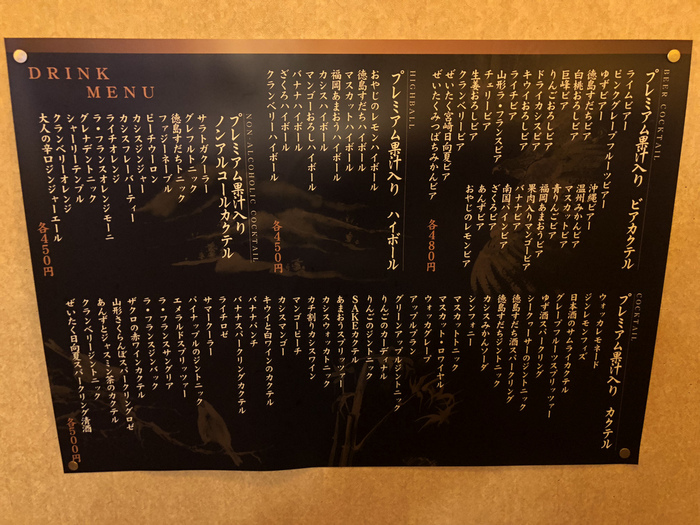 DRINK
MENU
BEER COCKTAIL
プレミアム果汁入り ビアカクテル
ライムビアー
ピンクグレープフルーツビアー
ゆずビアー
徳島すだちビア
白桃おろしビア
巨峰ビア
りんごおろしビア
ドライカシスビア
キウイおろしビア
ライチビア
山形ラ・フランスビア
チェリービア
生姜おろしビア
クランベリービア
ぜいたく宮崎日向夏ビア
ぜいたくみつばちみかんビア
沖縄ビアー
温州みかんビア
マスカットビア
青りんごビア
福岡あまおうビア
果肉入りマンゴービア
バナナビア
南国パインビア
ざくろビア
あんずビア
おやじのレモンビア
各480円
HIGHBALL
プレミアム果汁入り ハイボール
おやじのレモンハイボール
徳島すだちハイボール
マスカットハイボール
福岡あまおうハイボール
カシスハイボール
マンゴーおろしハイボール
バナナハイボール
ざくろハイボール
クランベリーハイボール
各450円
NON ALCOHOLIC COCKTAIL
プレミアム果汁入り
ノンアルコールカクテル
サラトガクーラー
グレフルトニック
徳島すだちトニック
ファジーネーブル
ピーチウーロン
カシスジンジャー
カシスオレンジティー
ライチオレンジ
ラ・フランスオレンジモーニ
グレ・デントニック
シャーリーテンプル
クランベリーオレンジ
大人の辛口ジンジャーエール
各450円
COCKTAIL
プレミアム果汁入り カクテル
ウォッカレモネード
ジンレモンフィズ
日本酒のサムライカクテル
グレープフルーツスプリッツァー
ゆず酒スパークリング
シークァーサーのジントニック
徳島すだち酒スパークリング
徳島すだちジントニック
カシスみかんソーダ
シンフォニー
マスカットトニック
マスカット・ロワイヤル
ウォッカグレープ
アップルブラン
グリーンアップルジントニック
りんごのカーディナル
りんごのジントニック
SAKEカクテル
あまおうスプリッツァー
カシスウォッカトニック
カチ割りカシスワイン
マンゴーピーチ
カシスマンゴー
キウイと白ワインのカクテル
バナナパンチ
バナナスパークリングカクテル
ライチロゼ
サマークーラー
パイナップルのジントニック
エメラルドスプリッツァー
ラ・フランスサングリア
ラ・フランスジンバック
ザクロの赤ワインカクテル
山形さくらんぼスパークリングロゼ
あんずとジャスミン茶のカクテル
クランベリージントニック
ぜいたく日向夏スパークリング清酒
各500円